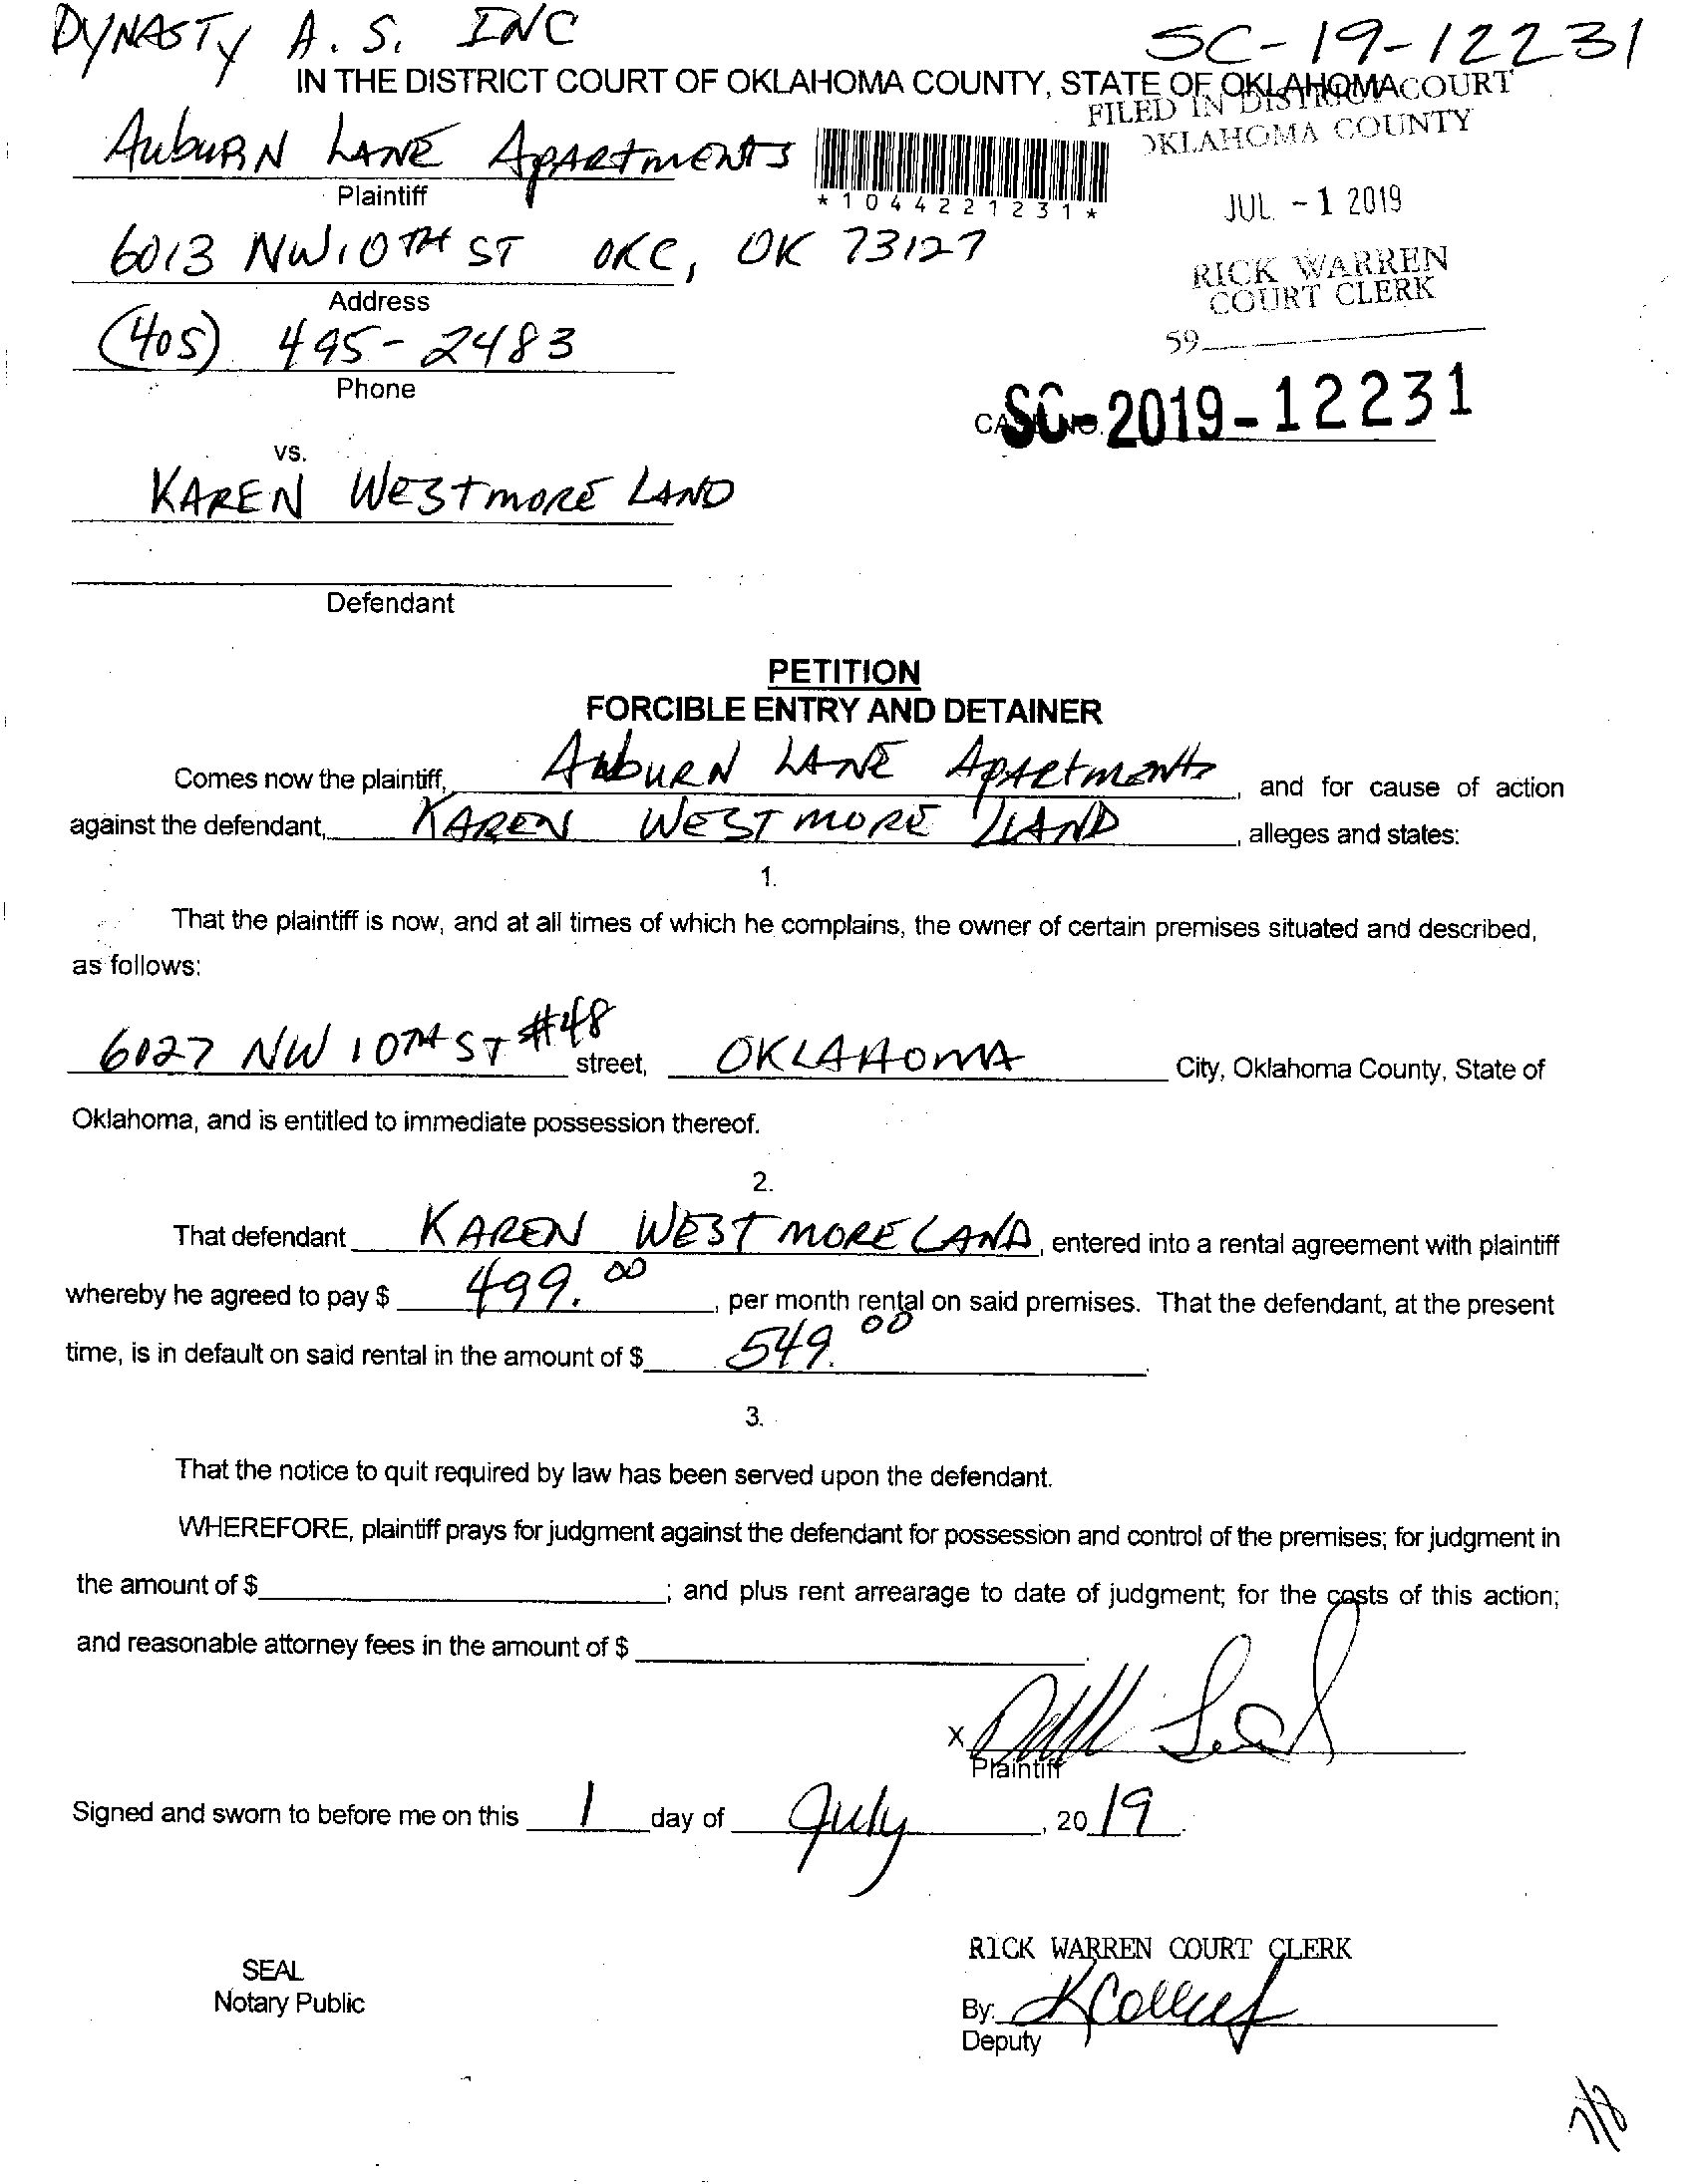 DYNASTY A. S. INC
SC-19-12231
IN THE DISTRICT COURT OF OKLAHOMA COUNTY, STATE OF OKLAHOMA
FILED IN DISTRICT COURT
OKLAHOMA COUNTY
AUBURN LANE APARTMENTS
Plaintiff
*1044221231*
JUL -1 2019
6013 NW 10TH ST OKC, OK 73127
Address
RICK WARREN
COURT CLERK
59
(405) 495-2483
Phone
SC-2019-12231
vs.
KAREN WESTMORELAND
Defendant
PETITION
FORCIBLE ENTRY AND DETAINER
Comes now the plaintiff, AUBURN LANE APARTMENTS, and for cause of action
against the defendant, KAREN WESTMORELAND, alleges and states:
1.
That the plaintiff is now, and at all times of which he complains, the owner of certain premises situated and described,
as follows:
6027 NW 10TH ST #48 street, OKLAHOMA City, Oklahoma County, State of
Oklahoma, and is entitled to immediate possession thereof.
2.
That defendant KAREN WESTMORELAND, entered into a rental agreement with plaintiff
whereby he agreed to pay $ 499.00, per month rental on said premises. That the defendant, at the present
time, is in default on said rental in the amount of $ 549.00.
3.
That the notice to quit required by law has been served upon the defendant.
WHEREFORE, plaintiff prays for judgment against the defendant for possession and control of the premises; for judgment in
the amount of $ ; and plus rent arrearage to date of judgment; for the costs of this action;
and reasonable attorney fees in the amount of $ .
X
Plaintiff
Signed and sworn to before me on this 1 day of July, 2019.
RICK WARREN COURT CLERK
SEAL
Notary Public
By:
Deputy